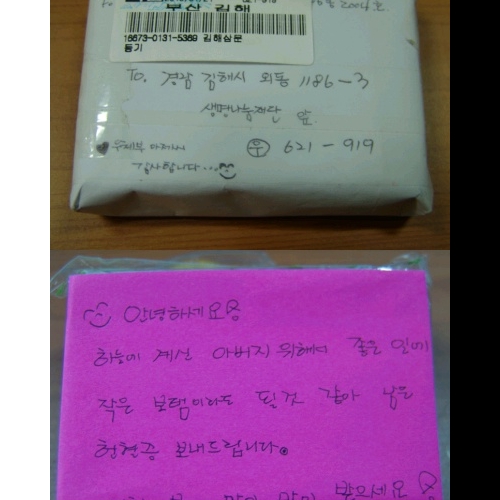 부산 김해
16673-0131-5369 김해삼문
등기
To. 경남 김해시 외동 1186-3
생명나눔재단 앞.
♥ 우체부 아저씨
감사합니다...
우 621-919
안녕하세요
하늘에 계신 아버지 위해서 좋은 일에
작은 보탬이라도 될것 같아 남은
헌혈증 보내드립니다.
많이 많이 받으세요